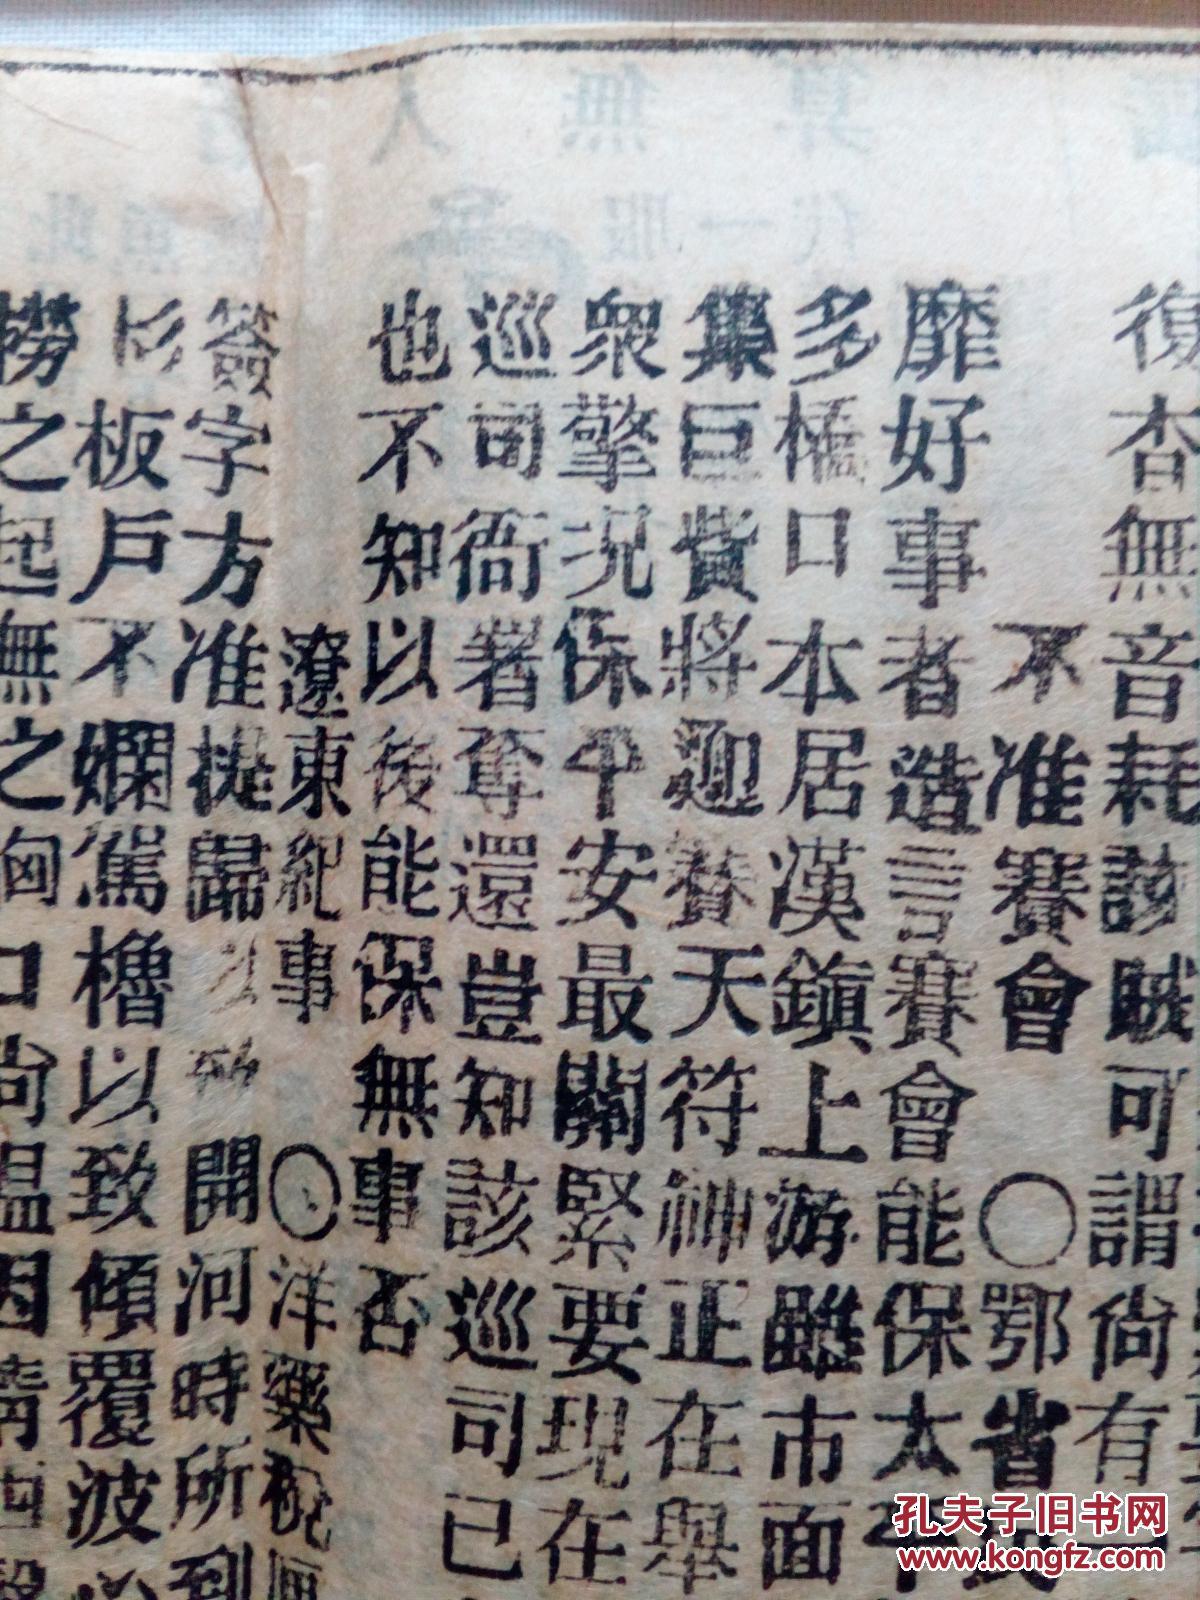 復杳無音耗該賊可謂尙有
不准賽會 〇鄂省
靡好事者造言賽會能保太平
多橋口本居漢鎮上游雖市面
集巨貲將迎養天符神正在舉
衆擎況保平安最關緊要現在
巡司衙署奪還豈知該巡司已
也不知以後能保無事否
遼東紀事 〇洋藥税厘
簽字方准提歸 開河時所到
杉板戶不嫻駕櫓以致傾覆波
撈之起無之胸口尙温因請西醫
孔夫子旧书网
www.kongfz.com